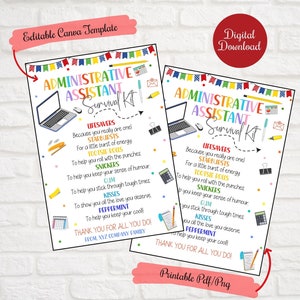 Editable Canva Template
Digital
Download
ADMINISTRATIVE
ASSISTANT
Survival Kit
LIFESAVERS
Because you really are one!
STARBURSTS
For a little burst of energy
TOOTSIE ROLLS
To help you roll with the punches
SNICKERS
To help you keep your sense of humour
GUM
To help you stick through tough times
KISSES
To show you all the love you deserve
PEPPERMINT
To help you keep your cool!
THANK YOU FOR ALL YOU DO!
FROM, XYZ COMPANY FAMILY
ADMINISTRATIVE
ASSISTANT
Survival Kit
LIFESAVERS
you really are one!
STARBURSTS
burst of energy
ROLLS
with the punches
SNICKERS
your sense of humour
you stick through tough times
KISSES
all the love you deserve
PEPPERMINT
you keep your cool!
THANK YOU FOR ALL YOU DO!
Printable Pdf/Png